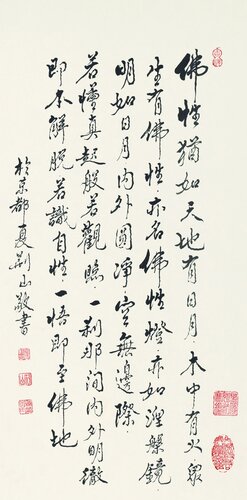 佛性猶如天地有日月木中有火眾
生有佛性亦名佛性燈亦如涅槃鏡
明如日月內外圓淨空無邊際
若懂真起般若觀照一刹那間內外明徹
即本解脫若識自性一悟即至佛地
於京都夏荊山敬書